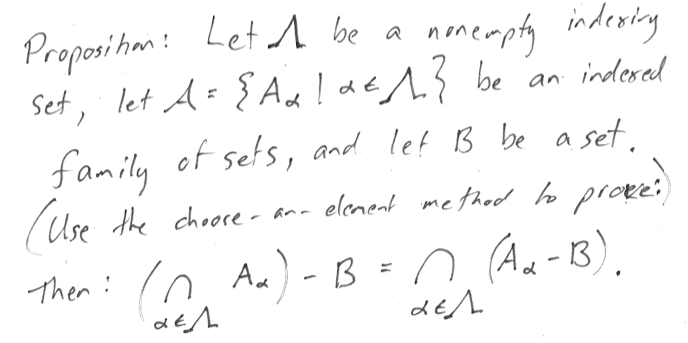 Proposition: Let Λ be a nonempty indexing
set, let A = {Aα | α ∈ Λ} be an indexed
family of sets, and let B be a set.
(Use the choose-an-element method to prove:)
Then: (⋂ Aα) - B = ⋂ (Aα - B).
α∈Λ α∈Λ